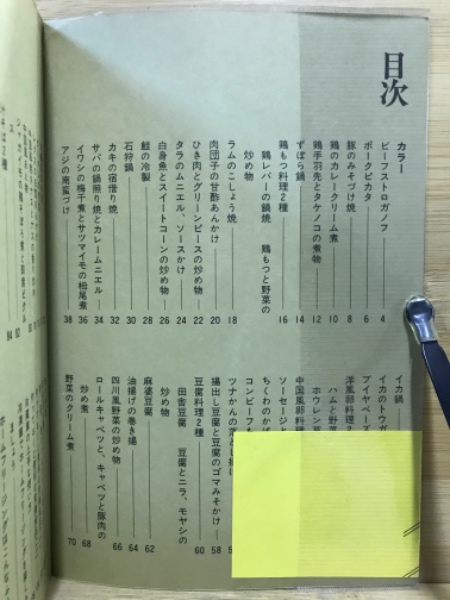 目次
カラー
ビーフストロガノフ 4
ポークピカタ 6
豚のみそづけ焼 8
鶏のカレークリーム煮 10
鶏手羽先とタケノコの煮物 12
ずぼら鍋 14
鶏もつ料理2種 16
鶏レバーの鍋焼 鶏もつと野菜の
炒め物
ラムのこしょう焼 18
肉団子の甘酢あんかけ 20
ひき肉とグリーンピースの炒め物 22
タラのムニエル、ソースかけ 24
白身魚とスイートコーンの炒め物 26
鮭の冷製 28
石狩鍋 30
カキの宿借り焼 32
サバの鍋照り焼とカレームニエル 34
イワシの梅干煮とサツマイモの栂尾煮 36
アジの南蛮づけ 38
イカ鍋
イカのトウガ
ブイヤベース
洋風卵料理2
ハムと野菜
ホウレン草
中国風卵料
ソーセージ
ちくわのかば
コンビーフ
ツナかんの落とし揚げ
揚出し豆腐と豆腐のゴマみそかけ 58
豆腐料理2種 60
田舎豆腐 豆腐とニラ、モヤシの
炒め物
麻婆豆腐 62
油揚げの巻き揚 64
四川風野菜の炒め物 66
ロールキャベツと、キャベツと豚肉の
炒め煮 68
野菜のクリーム煮 70